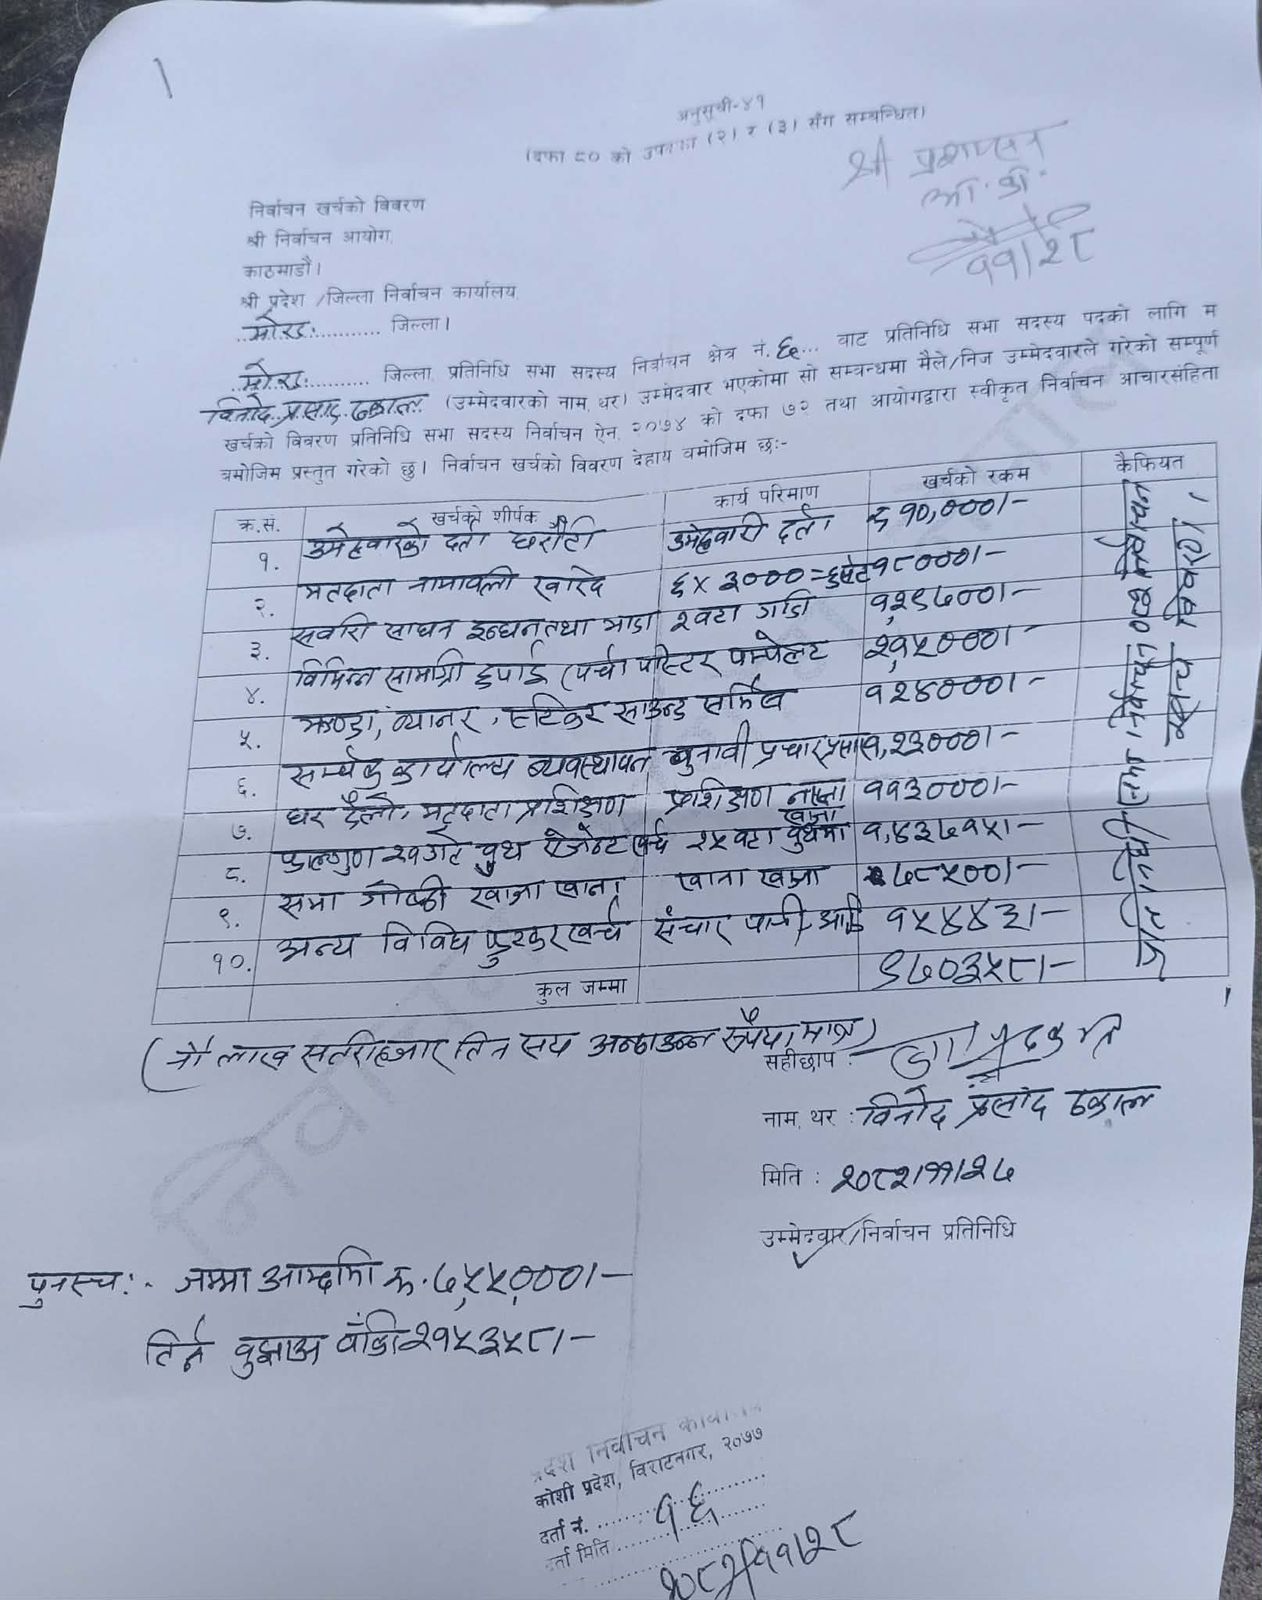 अनुसूची-४१
(दफा ८० को उपदफा (२) र (३) सँग सम्बन्धित)
श्री प्रशासन
११।२८
निर्वाचन खर्चको विवरण
श्री निर्वाचन आयोग,
काठमाडौं।
श्री प्रदेश /जिल्ला निर्वाचन कार्यालय,
मोरङ............ जिल्ला।
मोरङ............ जिल्ला, प्रतिनिधि सभा सदस्य निर्वाचन क्षेत्र नं. ६... बाट प्रतिनिधि सभा सदस्य पदको लागि म
विनोद प्रसाद ढकाल (उम्मेदवारको नाम, थर) उम्मेदवार भएकोमा सो सम्बन्धमा मैले/निज उम्मेदवारले गरेको सम्पूर्ण
खर्चको विवरण प्रतिनिधि सभा सदस्य निर्वाचन ऐन, २०७४ को दफा ७२ तथा आयोगद्वारा स्वीकृत निर्वाचन आचारसंहिता
बमोजिम प्रस्तुत गरेको छु। निर्वाचन खर्चको विवरण देहाय बमोजिम छः-
क्र.सं. खर्चको शीर्षक कार्य परिमाण खर्चको रकम कैफियत
१. उमेद्वारको दर्ता धरौटी उमेद्वारी दर्ता रु १०,०००।-
२. मतदाता नामावली खरिद ६ x ३००० = ६सेट १८०००।-
३. सवारी साधन इन्धन तथा भाडा २ वटा गाडी १,२९७००।-
४. विभिन्न सामाग्री छपाई (पर्चा पोस्टर पम्पलेट २१,५०००।-
५. झण्डा, ब्यानर, स्टिकर साउन्ड सर्भिस १२४०००।-
६. सम्पर्क कार्यालय व्यवस्थापन चुनावी प्रचार प्रसार १,२३०००।-
७. घर दैलो, मतदाता प्रशिक्षण प्रशिक्षण नास्ता खाजा ११३०००।-
८. फाल्गुण २१ गते बुथ एजेन्ट खर्च २५ वटा बुथमा १,४३७१५।-
९. सभा गोष्ठी खाजा खाना खाना खाजा ७८५००।-
१०. अन्य विविध फुटकर खर्च संचार पानी आदि १५४४३।-
कुल जम्मा ९७०३५८।-
(नौ लाख सत्तरीहजार तिन सय अन्ठाउन्न रूपैया मात्र)
सहीछाप :
नाम, थर : विनोद प्रसाद ढकाल
मिति : २०८२।११।२७
उम्मेदवार/निर्वाचन प्रतिनिधि
पुनस्चः- जम्मा आम्दानी रू. ७,५५,०००।-
तिर्न बुझाउन बाँकी २१५३५८।-
प्रदेश निर्वाचन कार्यालय
कोशी प्रदेश, विराटनगर, २०७७
दर्ता नं. ......... १६
दर्ता मिति .........
२०८२।११।२८